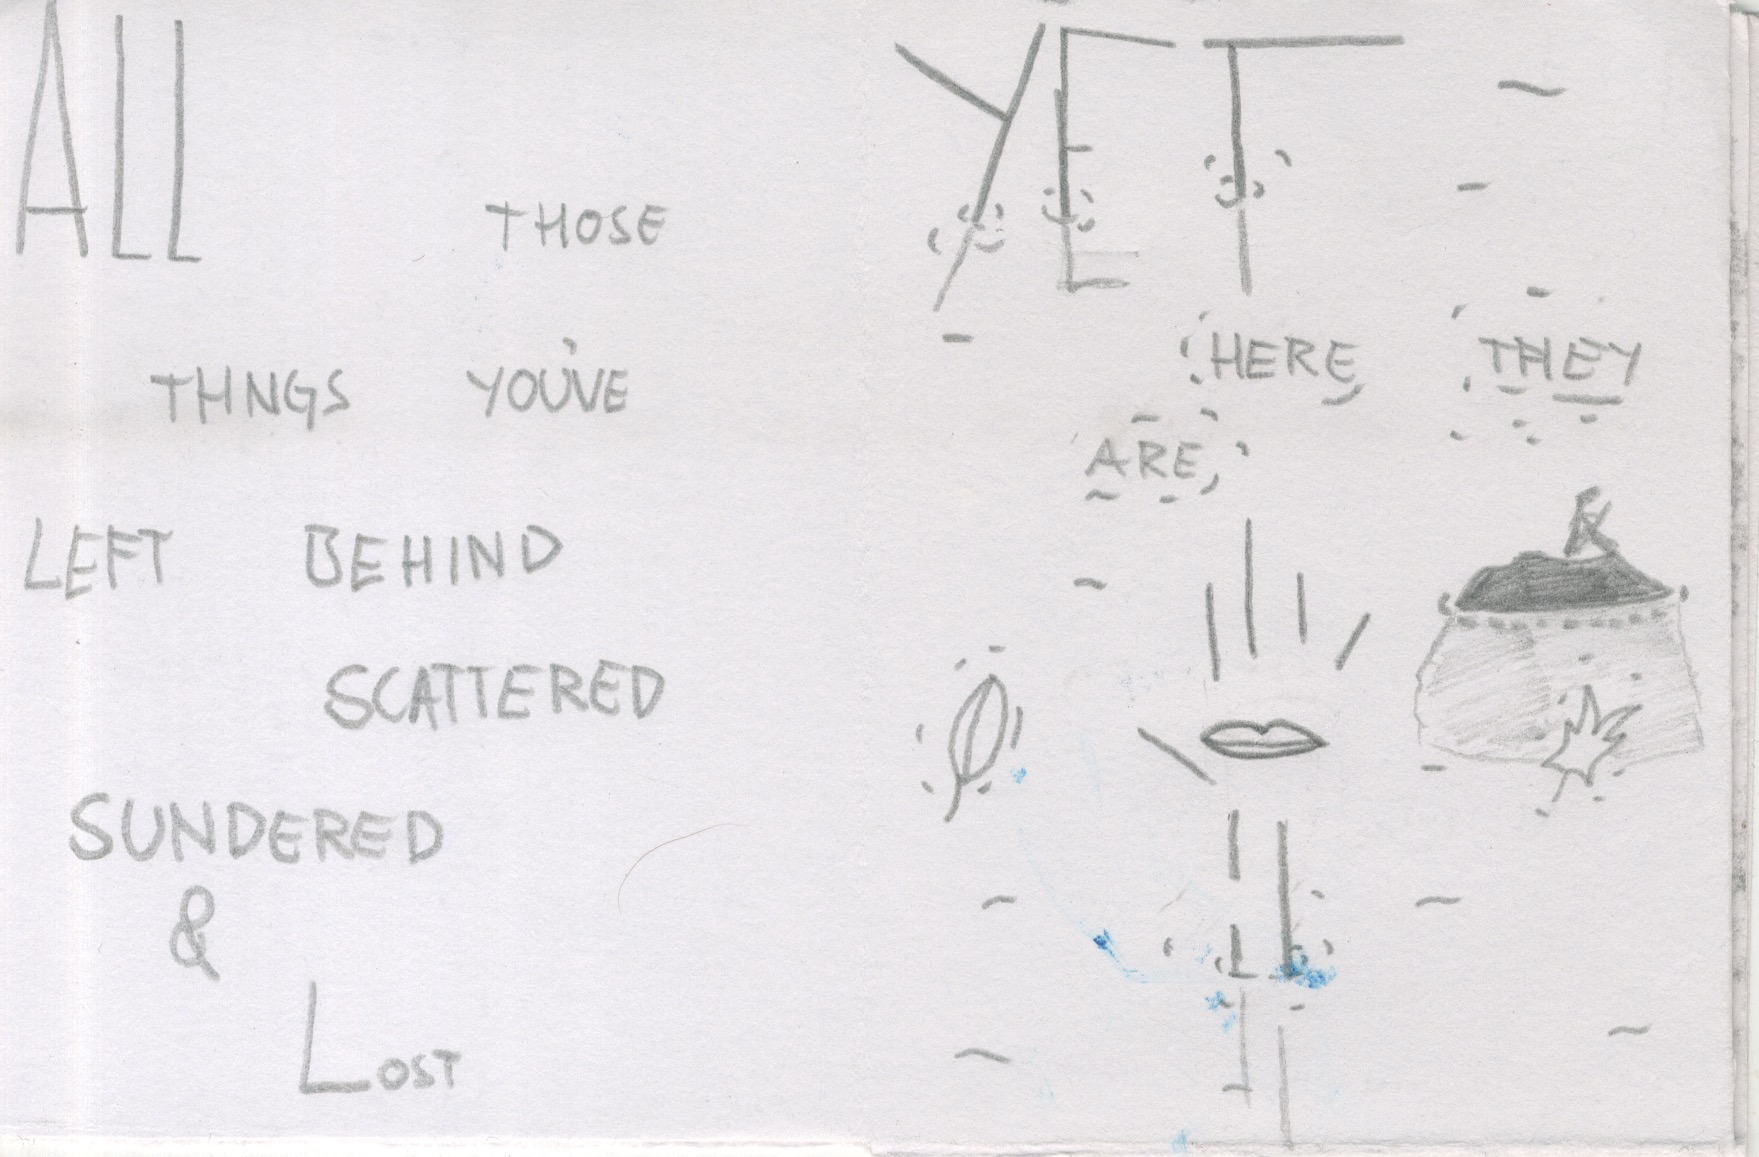 ALL
THOSE
THNGS YOU'VE
LEFT BEHIND
SCATTERED
SUNDERED
&
LOST
YET
HERE THEY
ARE